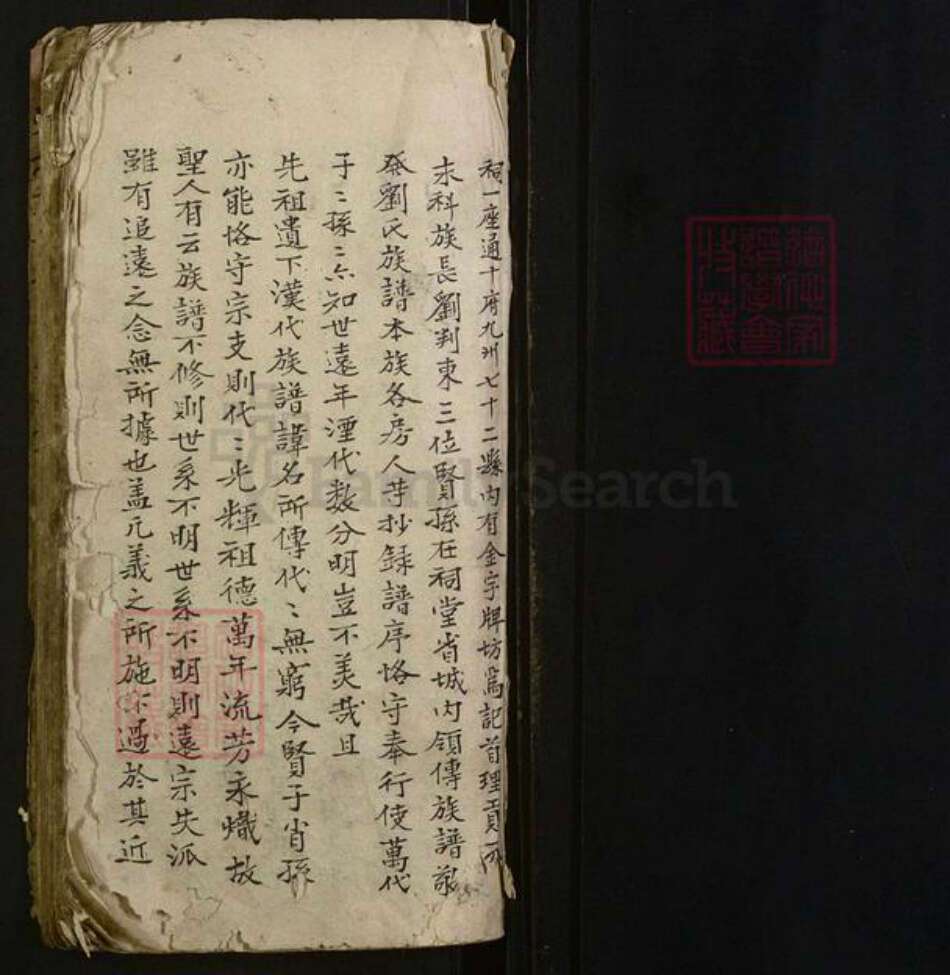 祠一座通十府九州七十二縣內有金字牌坊為記首理貢
未科族長劉判東三位賢孫在祠堂省城內領傳族譜敬
發劉氏族譜本族各房人等抄錄譜序恪守奉行使萬代
子〻孫〻亦知世遠年湮代数分明豈不美哉且
先祖遺下漢代族譜諱名所傳代〻無窮今賢子肖孫
亦能恪守宗支則代〻光輝祖德萬年流芳永熾故
聖人有云族譜不修則世系不明世系不明則遠宗失派
雖有追遠之念無所據也盖凡義之所施不過於其近
FamilySearch